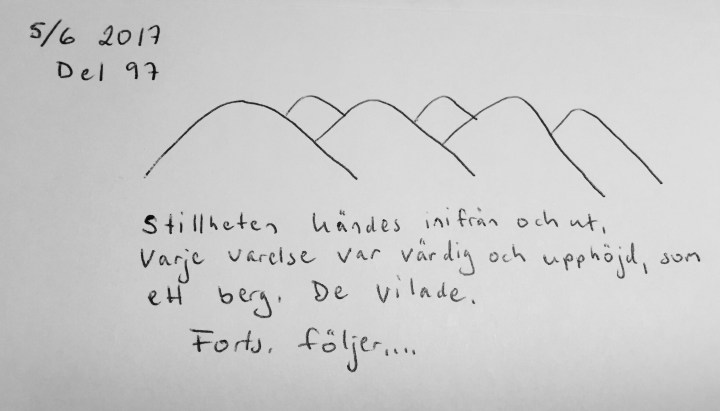 5/6 2017
Del 97
Stillheten händes inifrån och ut.
Varje varelse var värdig och upphöjd, som
ett berg. De vilade.
Forts. följer....